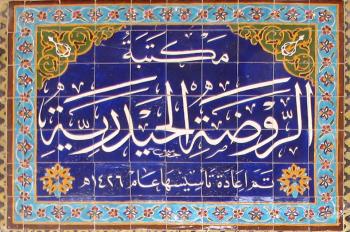 مكتبة
الروضة الحيدرية
تم إعادة تأسيسها عام ١٤٢٦هـ